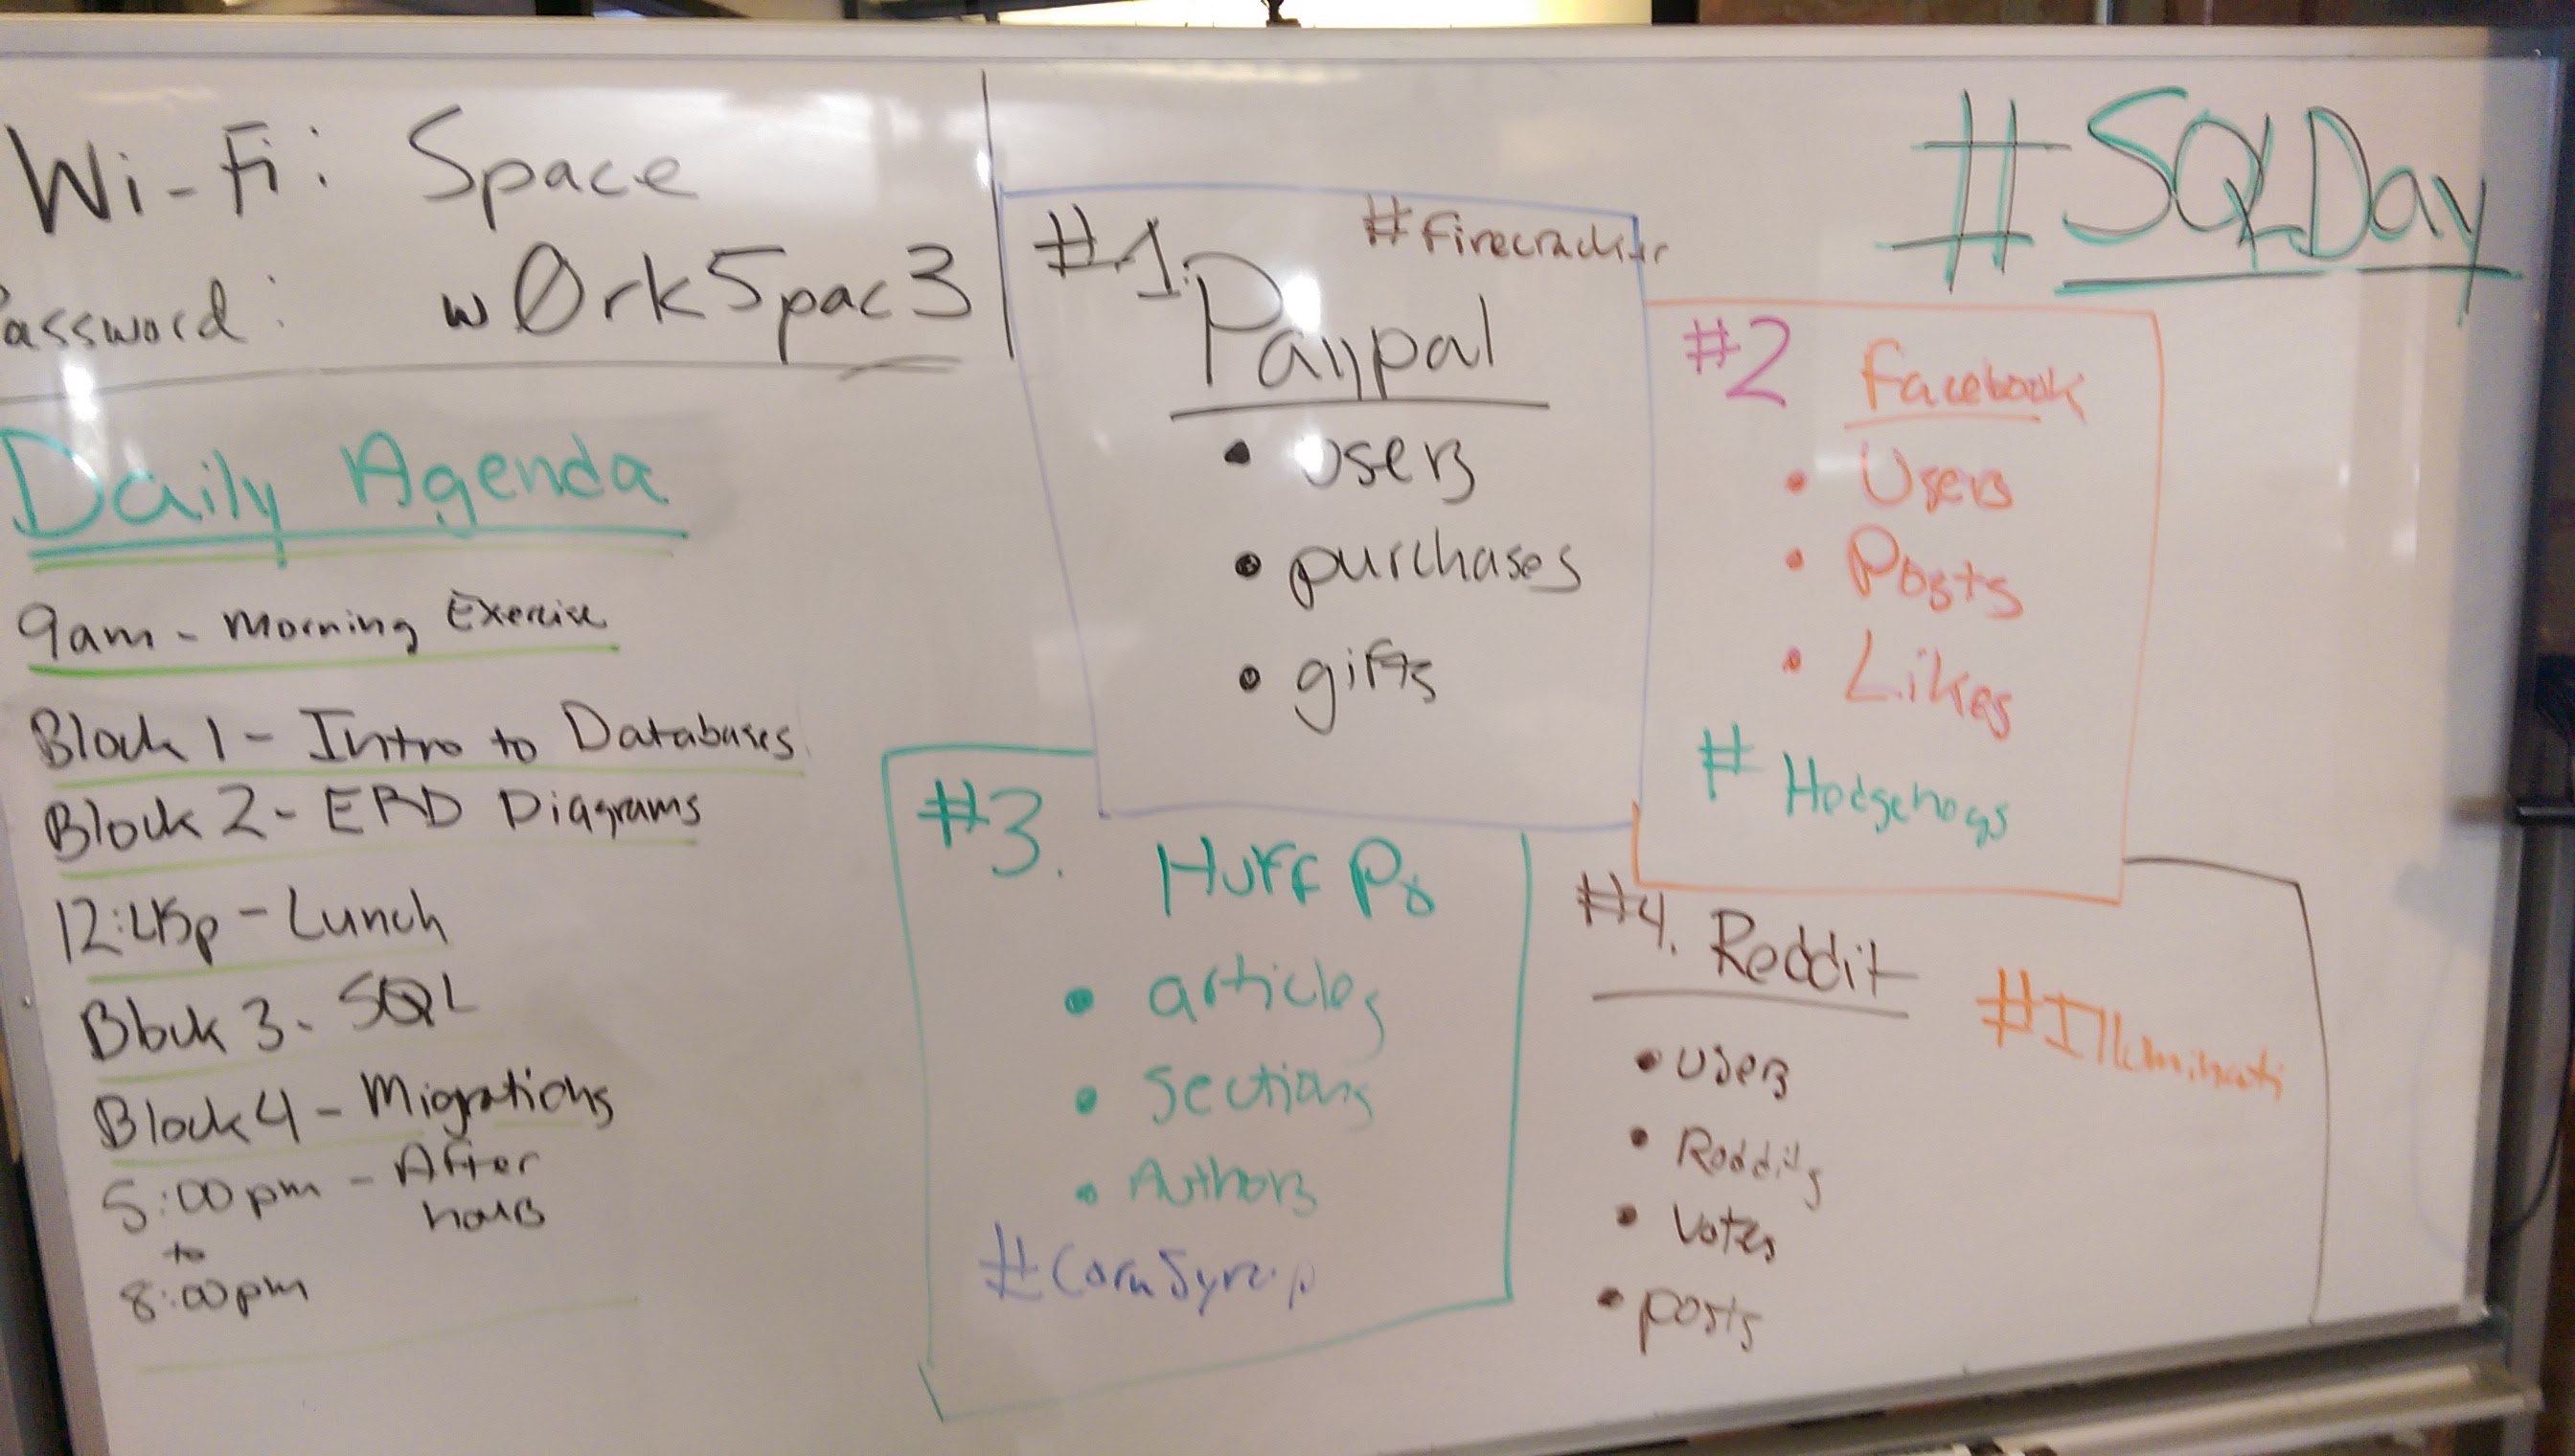 Wi-Fi: Space
Password: w0rk5pac3
Daily Agenda
9am - Morning Exercise
Block 1 - Intro to Databases
Block 2 - ERD Diagrams
12:45p - Lunch
Block 3 - SQL
Block 4 - Migrations
5:00pm - After
hours
to
8:00pm
#SQLDay
#1. #Firecracker
Paypal
• users
• purchases
• gifts
#2 Facebook
• Users
• Posts
• Likes
# Hedgehogs
#3.
Huff Po
• articles
• Sections
• Authors
#CornSyrup
#4. Reddit
#Illuminati
• users
• Reddits
• Votes
• posts